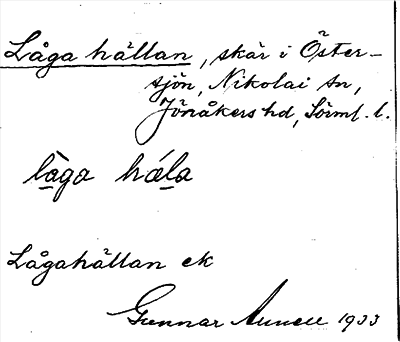 Låga hällan, skär i Öster-
sjön, Nikolai sn,
Jönåkers hd, Sörml. l.
lå̀ga hǽla
Lågahällan ek
Gunnar 1933